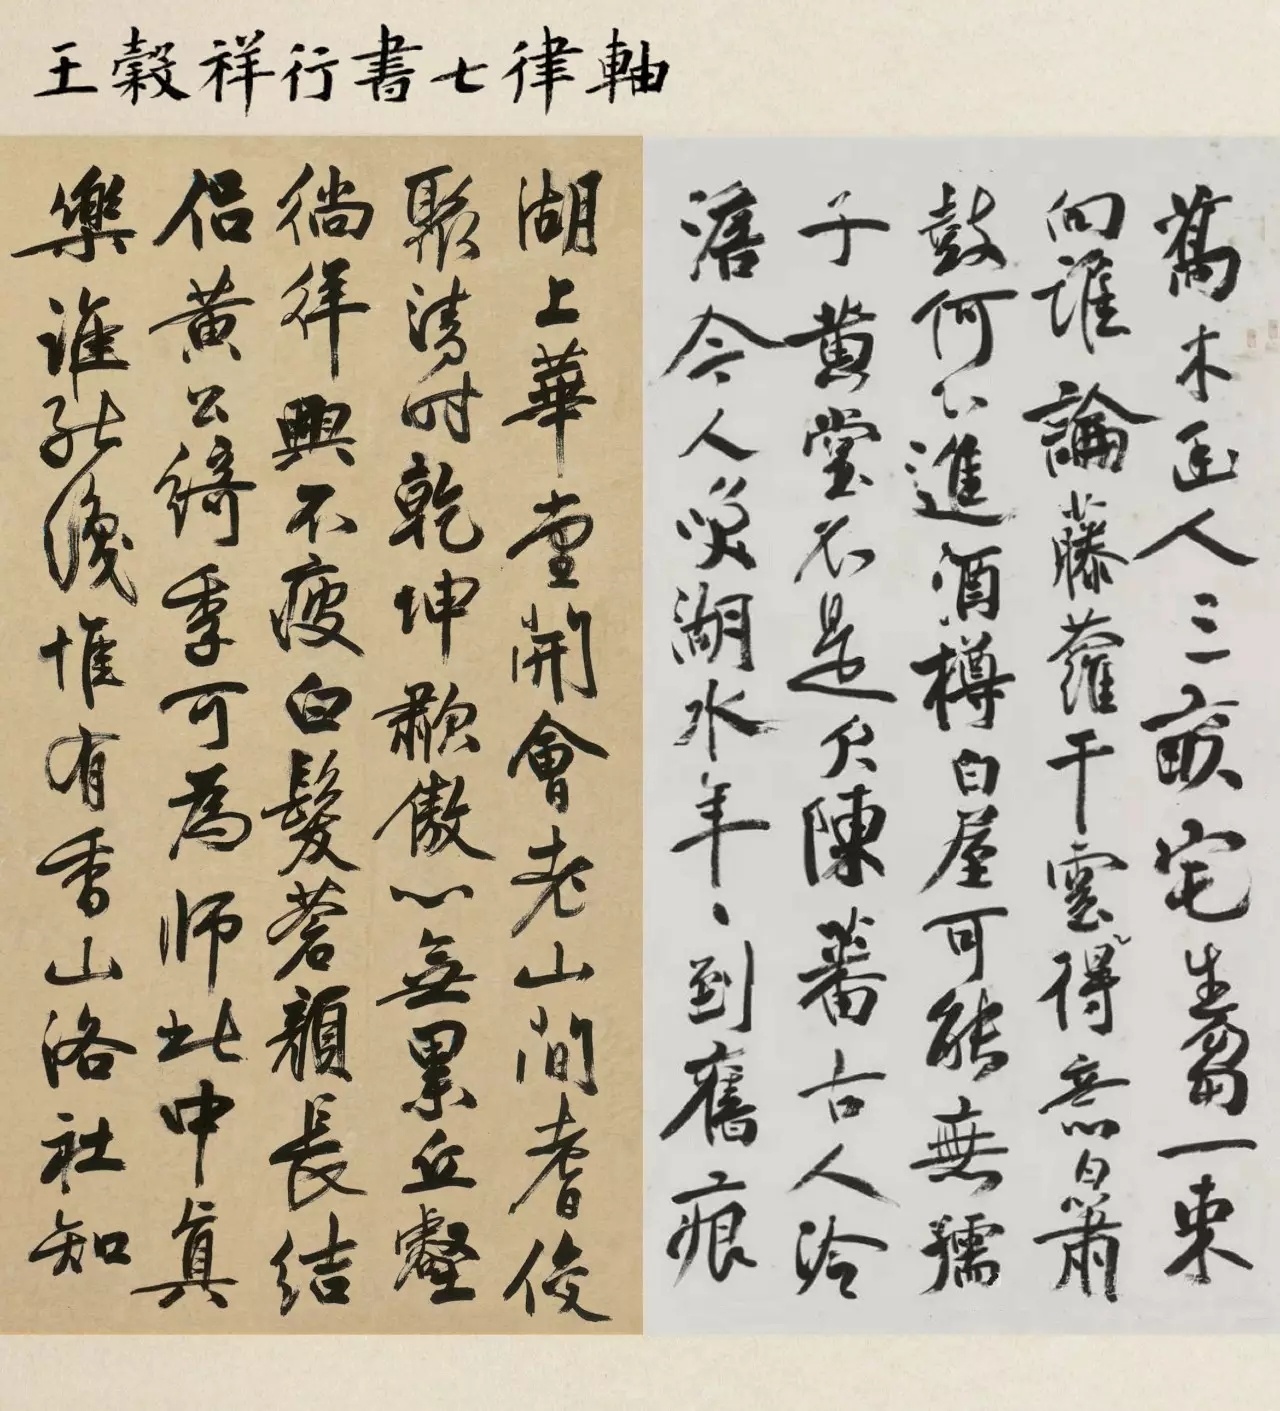 王穀祥行書七律軸
喬木幽人三畝宅生芻一束
向誰論藤蘿干雲得意日簫
鼓何進酒樽白屋可能無孺
子黃堂不是欠陳蕃古人冷
澹今人笑湖水年々到舊痕
湖上華堂開會老山間耆俊
聚清時乾坤歗傲心無累丘壑
徜徉興不疲白髮蒼顏長結
侶黃公綺季可為師此中真
樂誰能識惟有香山洛社知